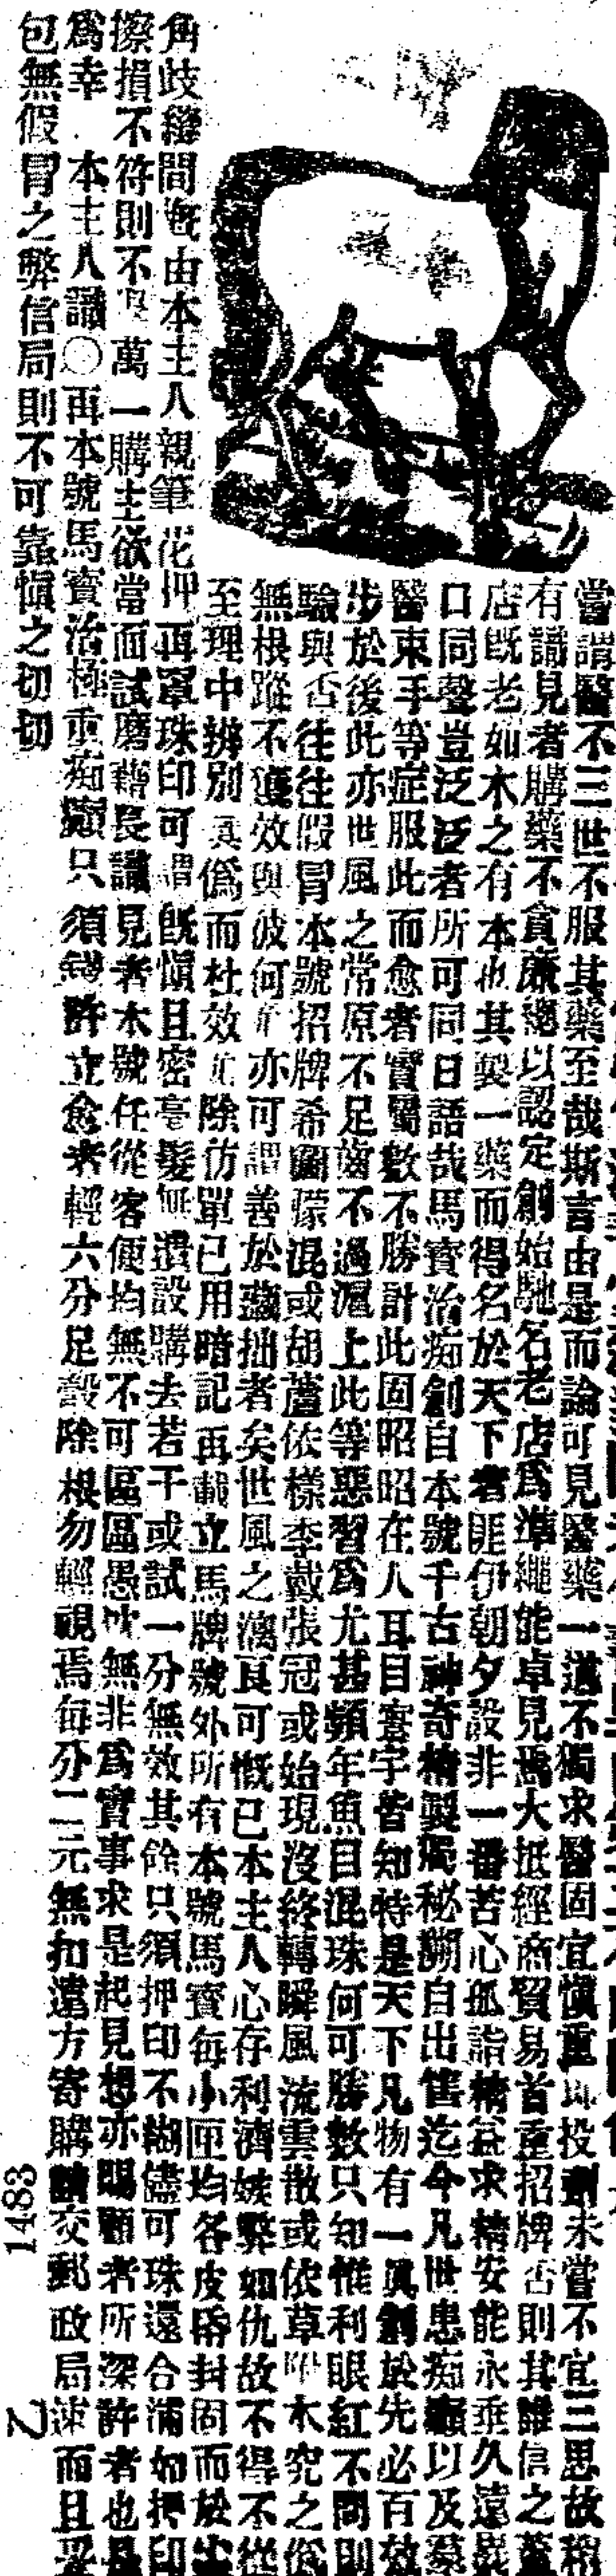 嘗謂醫不三世不服其藥至哉斯言由是而論可見醫藥一道不獨求醫固宜愼重即投劑未嘗不宜三思故稍
有識見者購藥不貪廉總以認定創始馳名老店爲準繩能卓見焉大抵經商貿易首重招牌否則其誰信之蓋
店旣老如木之有本也其製一藥而得名於天下者匪伊朝夕設非一番苦心孤詣精益求精安能永垂久遠
口同聲豈泛泛者所可同日語哉馬寳治痴創自本號千古神奇精製獨秘溯自出售迄今凡世患痴癲以及羣
醫束手等症服此而愈者實屬數不勝計此固昭昭在人耳目寰宇皆知特是天下凡物有一眞創於先必百效
步於後此亦世風之常原不足齒不過滬上此等惡習爲尤甚頻年魚目混珠何可勝數只知惟利眼紅不問則
驗與否往往假冒本號招牌希圖矇混或胡蘆依樣李戴張冠或始現沒終轉瞬風流雲散或依草附木究之俗
無根蹤不獲效與彼何尤亦可謂善於藏拙者矣世風之漓良可慨已本主人心存利濟嫉弊如仇故不得不從
至理中辨別眞僞而杜效尤除仿單已用暗記再載立馬牌號外所有本號馬寳每小匣均各皮昏封固而於尖
角歧縫間旣由本主人親筆花押再罩珠印可謂旣愼且密毫髮無遺設購去若干或試一分無效其餘只須押印不糊儘可珠還合浦如押印
擦損不符則不 萬一購主欲當面試磨藉長識見者本號任從客便均無不可區區愚忱無非爲實事求是起見想亦賜顧者所深許者也是
爲幸 本主人識〇再本號馬寳治極重痴癲只須錢許立愈者輕六分足彀除根勿輕視焉每分二元無扣遠方寄購請交郵政局速而且妥
包無假冒之弊信局則不可靠愼之切切
1483